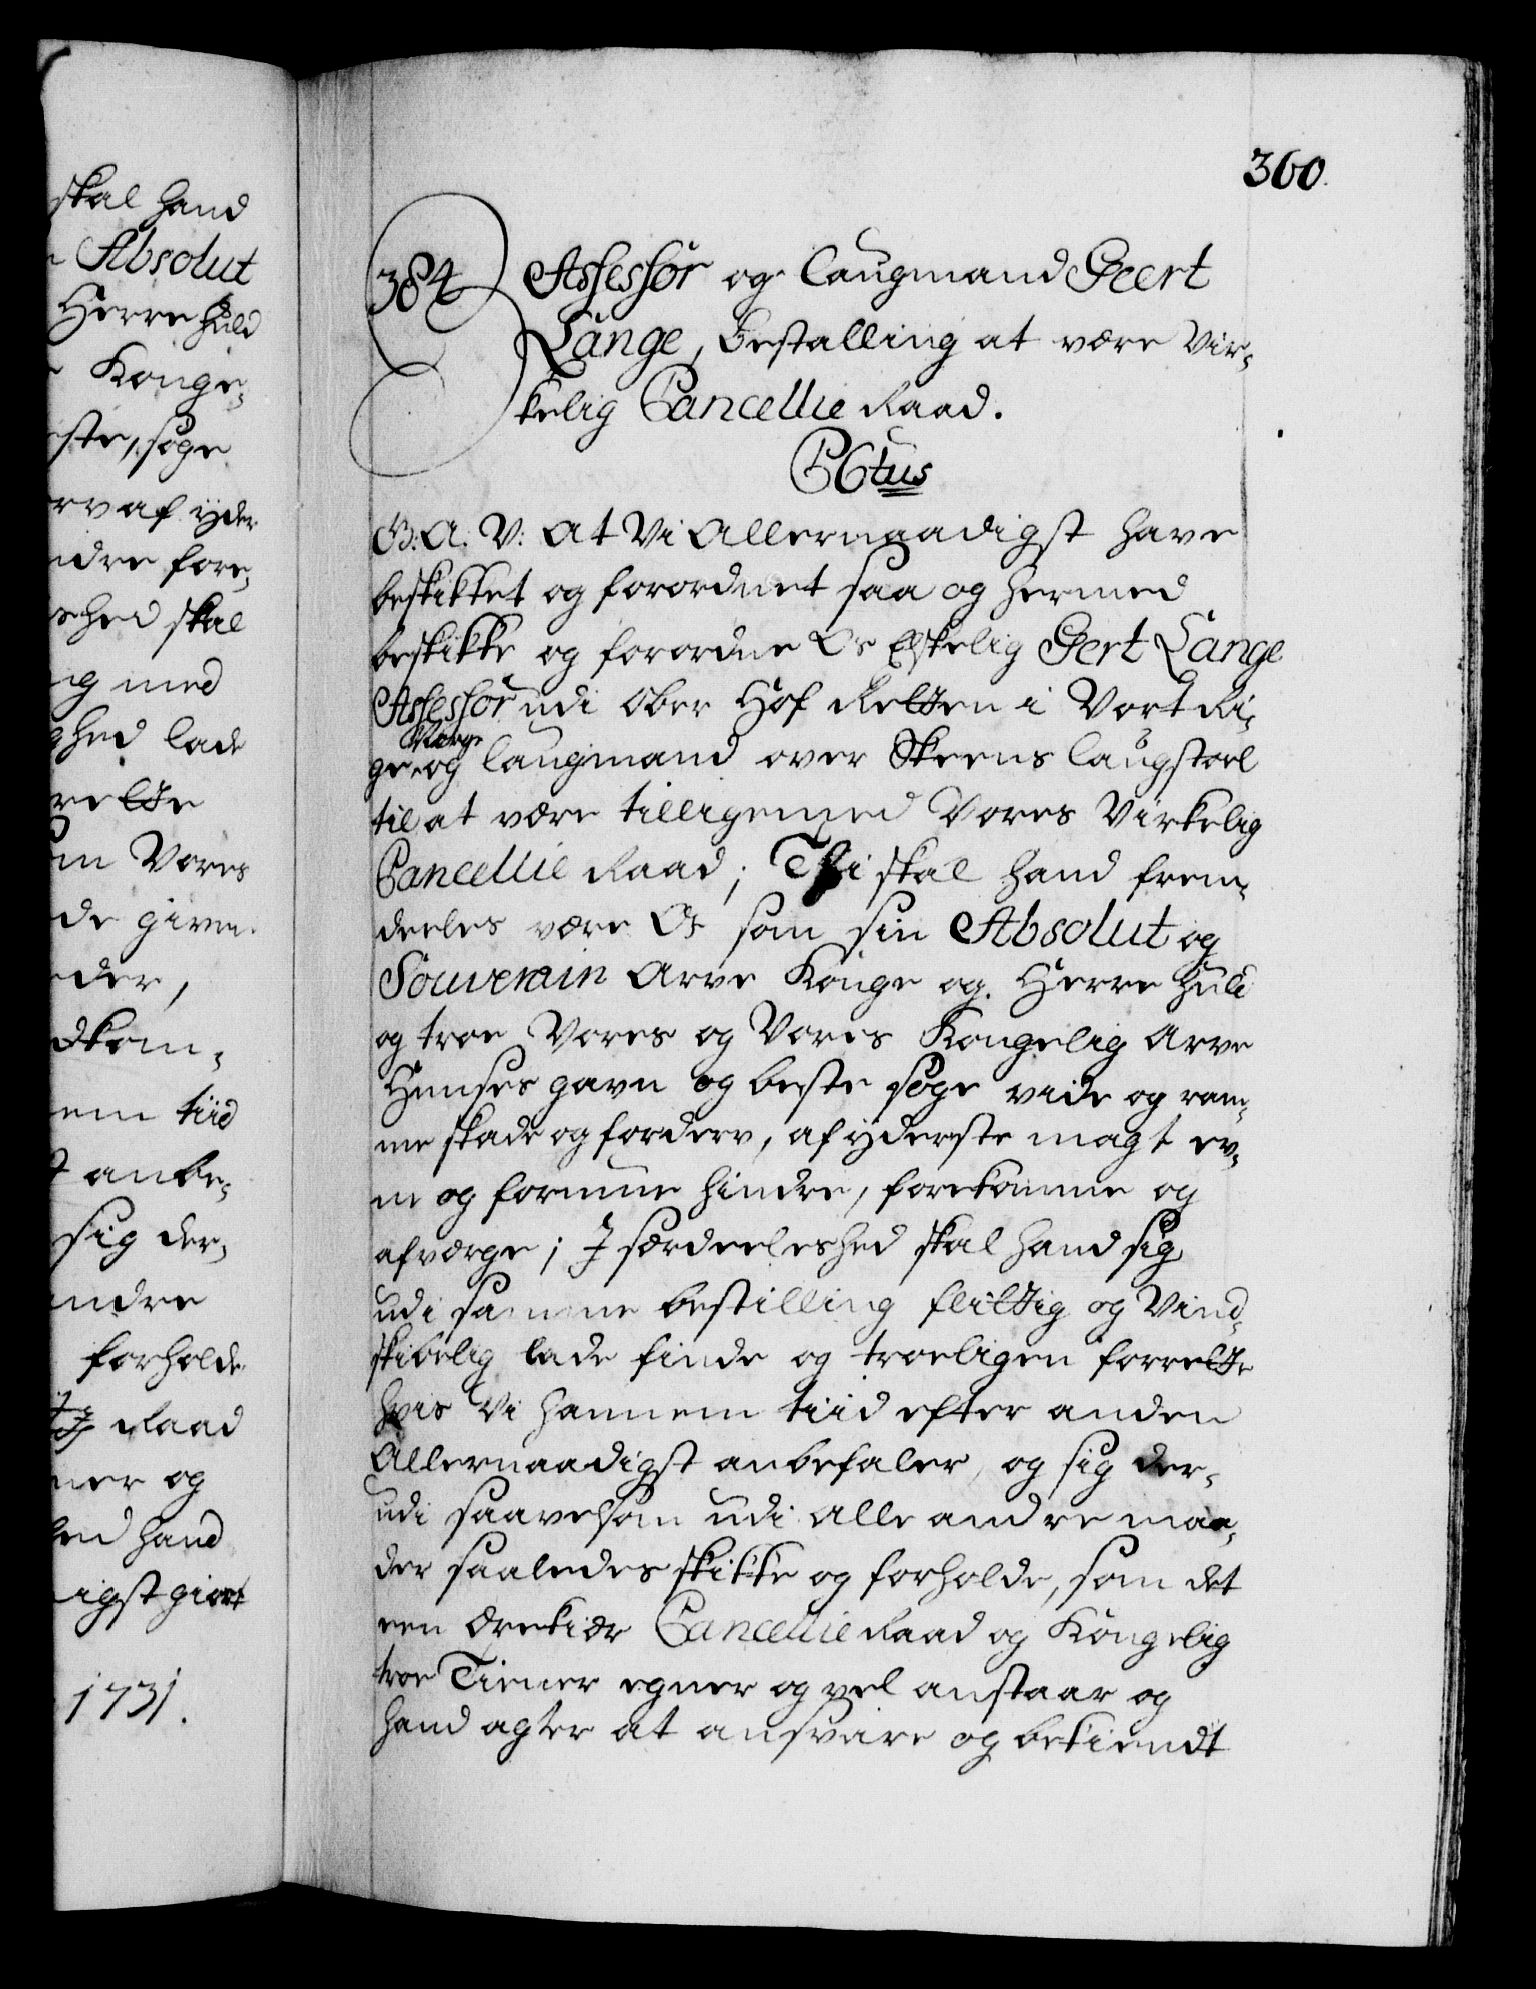 skal hand
Absolut
Herre huld
Konge-
este, søge
erv af yder-
ndre fore-
shed skal
g med
ghed lade
rette
m Vores
de given
eder,
dkom-
em tiid
anbe-
sig der-
ndre
forholde
Raad
ner og
hed hand
igst giørt
1731.
360.
384 Assessor og Laugmand Geert
Lange, Bestalling at være Vir-
kelig Cancellie Raad.
C6tus
G: A. V: At Vi Allernaadigst have
beskikket og forordnet saa og hermed
beskikke og forordne Os Elskelig Gert Lange
Assessor udi Ober Hof Retten i Vort Ri-
ge Norge og Laugmand over Skeens Laugstoel
til at være tilligemed Vores Virkelig
Cancellie Raad; Thi skal hand frem-
deeles være Os som sin Absolut og
Souverain Arve Konge og Herre huld
og troe Vores og Vores Kongelig Arve
Huuses gavn og beste søge vide og ram-
me skade og forderv, af yderste magt ev-
ne og formue hindre, forekomme og
afværge; I særdeeleshed skal hand sig
udi samme bestilling flittig og Vind-
skibelig lade finde og troeligen forrette
hvis Vi hannem tiid efter anden
Allernaadigst anbefaler, og sig der-
udi saavelsom udi alle andre maa-
der saaledes skikke og forholde, som det
een ærekiær Cancellie Raad og Kongelig
troe Tiener egner og vel anstaar og
hand agter at ansvare og bekiendt